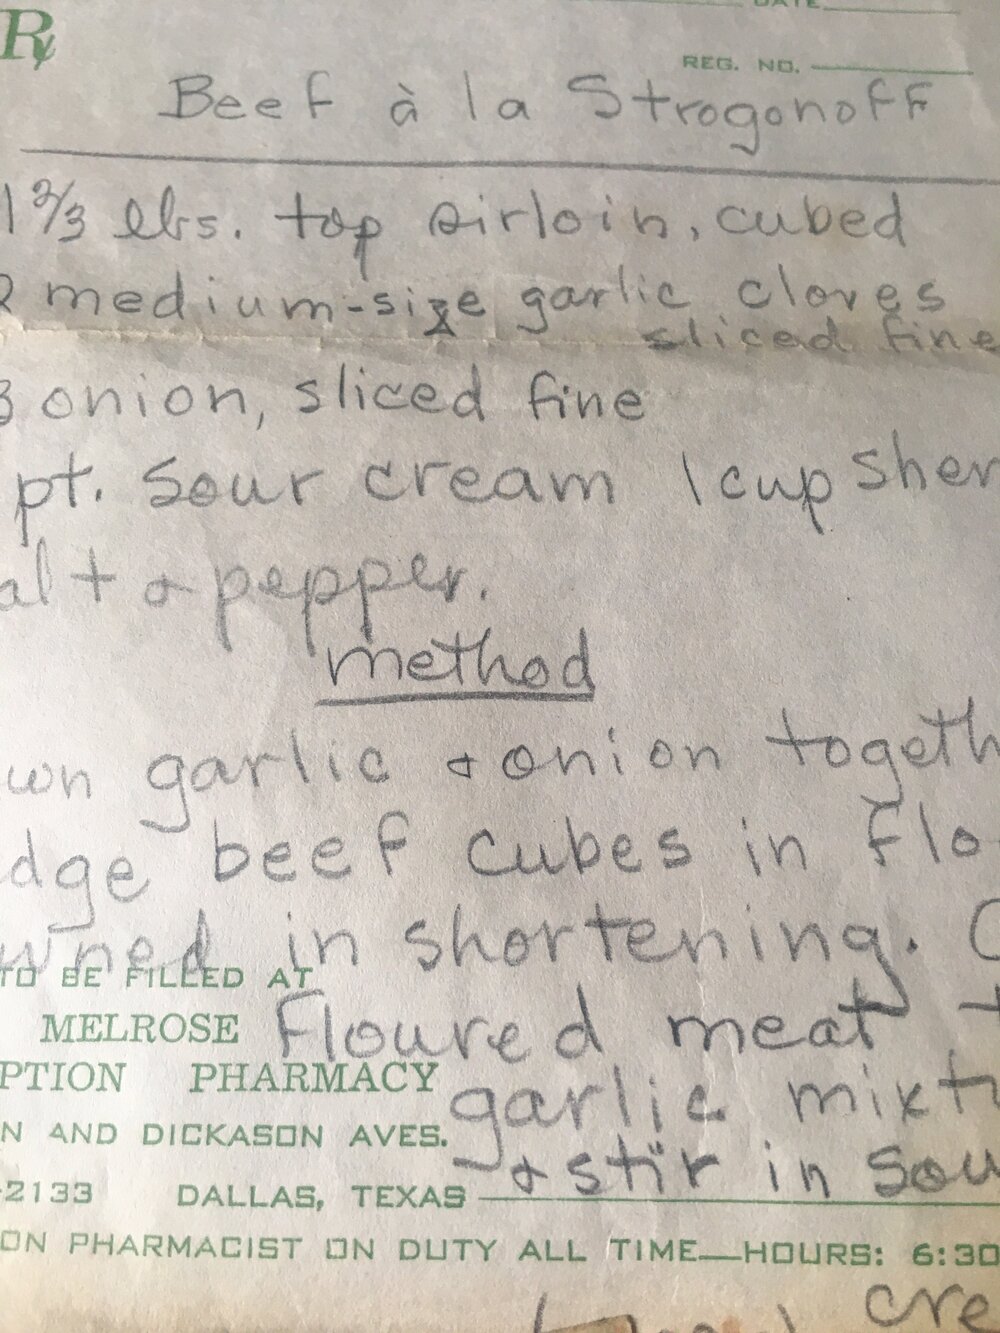 DATE
REG. NO.
Rx
Beef à la Strogonoff
1 2/3 lbs. top sirloin, cubed
2 medium-size garlic cloves
sliced fine
3 onion, sliced fine
pt. sour cream 1 cup sher
alt & pepper.
method
wn garlic & onion togeth
dge beef cubes in flo
wned in shortening. C
TO BE FILLED AT
MELROSE Floured meat
PTION PHARMACY
garlic mixtu
N AND DICKASON AVES.
& stir in sou
-2133 DALLAS, TEXAS
ON PHARMACIST ON DUTY ALL TIME—HOURS: 6:30
cre